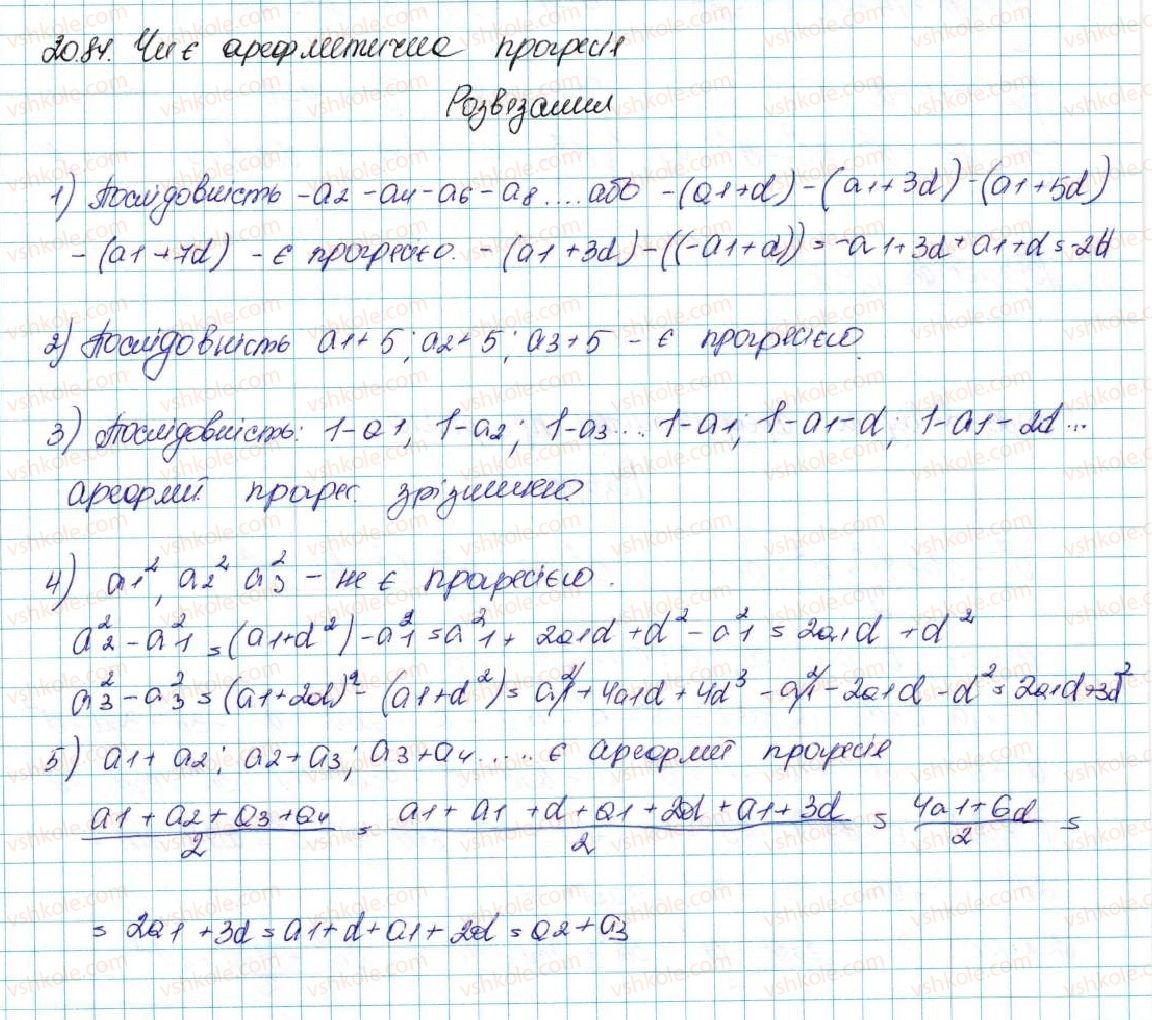 20.84. Чи є арифметична прогресія
Розвязання
1) Послідовність -a2 -a4 -a6 -a8 .... або -(a1+d) -(a1+3d) -(a1+5d)
-(a1+7d) - є прогресією. -(a1+3d) -((-a1+d)) = -a1+3d+a1+d = -2d
2) Послідовність a1+5; a2+5; a3+5 - є прогресією.
3) Послідовність: 1-a1, 1-a2; 1-a3 ... 1-a1; 1-a1-d; 1-a1-2d...
арифм. прогрес. зрізницею
4) a1², a2² a3² - не є прогресією.
a2² - a1² = (a1+d²) - a1² = a1² + 2a1d + d² - a1² = 2a1d + d²
a3² - a3² = (a1+2d)² - (a1+d²) = a1² + 4a1d + 4d³ - a1² - 2a1d - d² = 2a1d+3d²
5) a1+a2; a2+a3; a3+a4..... є арифмет прогресія
(a1+a2+a3+a4)/2 = (a1+a1+d+a1+2d+a1+3d)/2 = (4a1+6d)/2 =
= 2a1+3d = a1+d+a1+2d = a2+a3